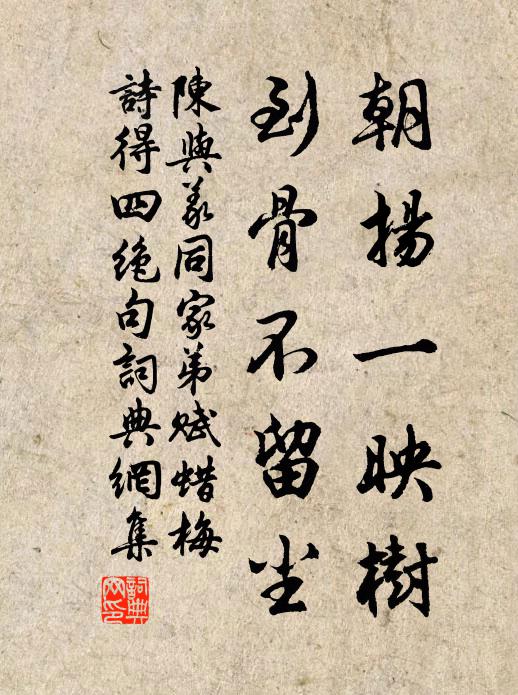 朝揚一映樹
到骨不留尘
陳與義同家弟賦蜡梅
詩得四绝句詞典網集
詞典